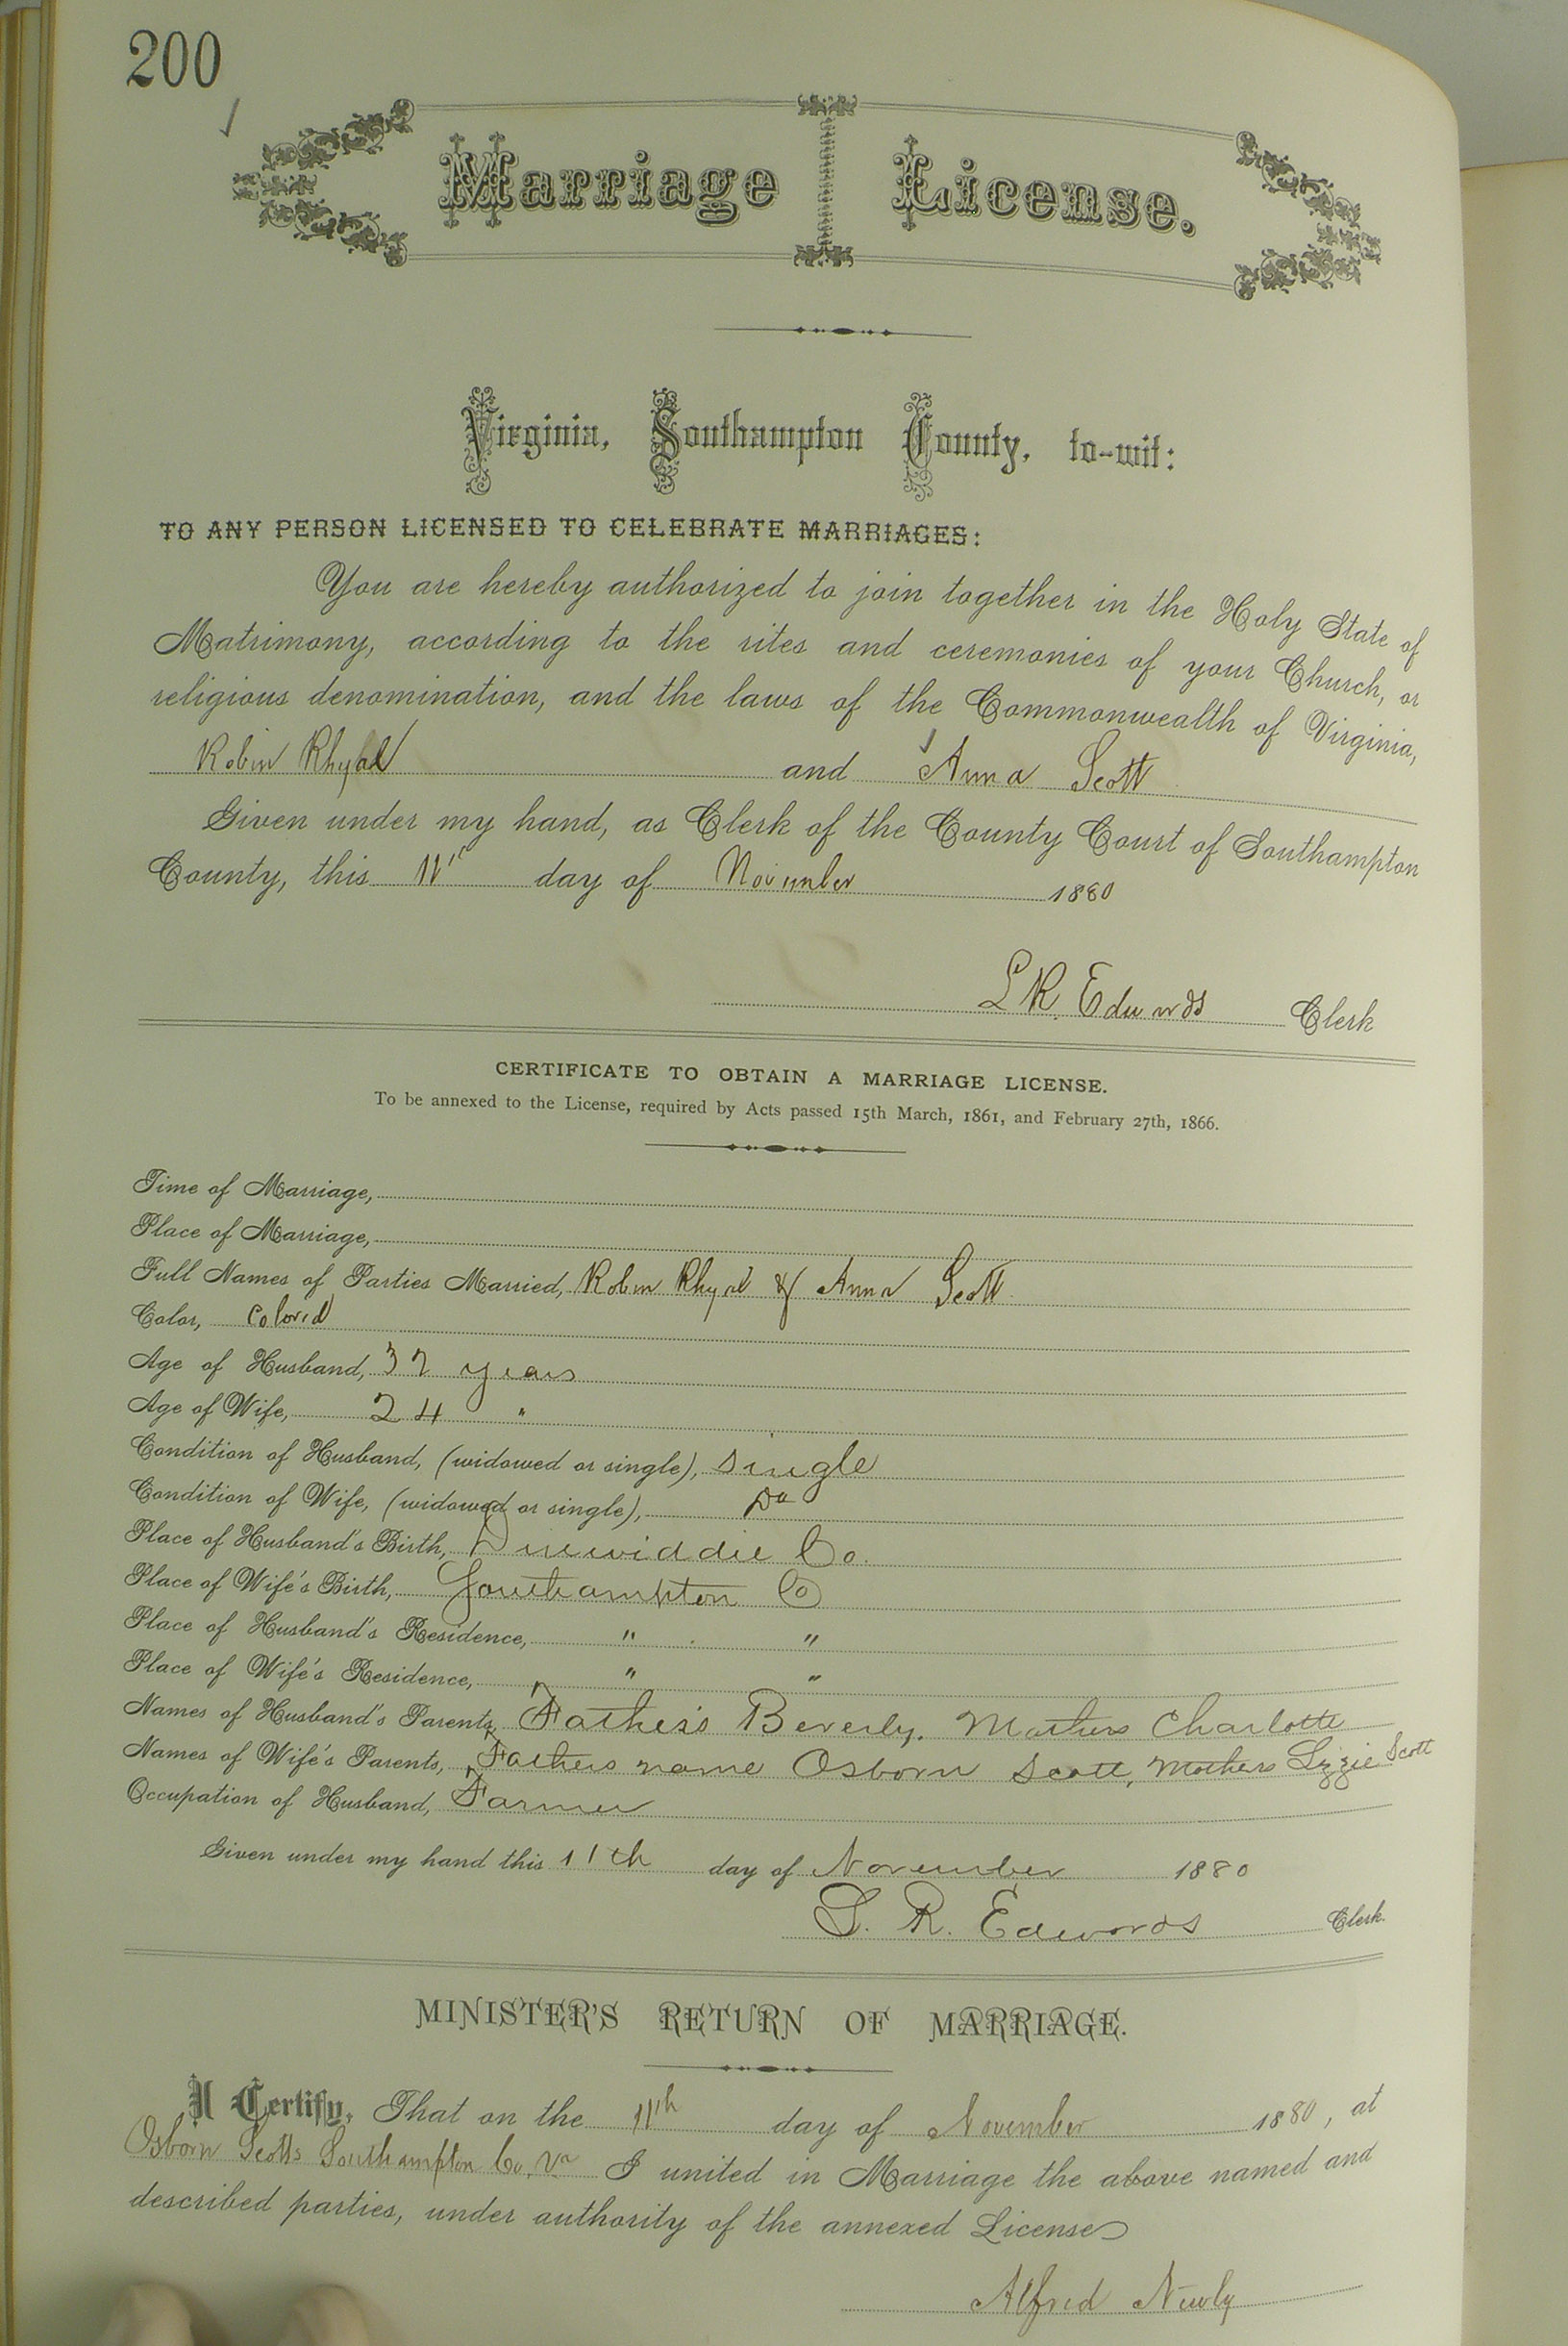 200
Marriage License.
Virginia, Southampton County, to-wit:
TO ANY PERSON LICENSED TO CELEBRATE MARRIAGES:
You are hereby authorized to join together in the Holy State of
Matrimony, according to the rites and ceremonies of your Church, or
religious denomination, and the laws of the Commonwealth of Virginia,
Robin and Anna Scott
Given under my hand, as Clerk of the County Court of Southampton
County, this 11th day of November 1880
L R. Edwards Clerk
CERTIFICATE TO OBTAIN A MARRIAGE LICENSE.
To be annexed to the License, required by Acts passed 15th March, 1861, and February 27th, 1866.
Time of Marriage,
Place of Marriage,
Full Names of Parties Married, Robin & Anna Scott
Color, Colored
Age of Husband, 32 years
Age of Wife, 24 "
Condition of Husband, (widowed or single), single
Condition of Wife, (widowed or single), Do
Place of Husband's Birth, Dinwiddie Co.
Place of Wife's Birth, Southampton Co
Place of Husband's Residence, " "
Place of Wife's Residence, " "
Names of Husband's Parents, Father's Beverly. Mothers Charlotte
Names of Wife's Parents, Fathers name Osborn Scott, Mothers Lizzie Scott
Occupation of Husband, Farmer
Given under my hand this 11th day of November 1880
L. R. Edwards Clerk.
MINISTER'S RETURN OF MARRIAGE.
I Certify, That on the 11th day of November 1880, at
Osborn Scotts Southampton Co, Va I united in Marriage the above named and
described parties, under authority of the annexed License
Alfred Newly